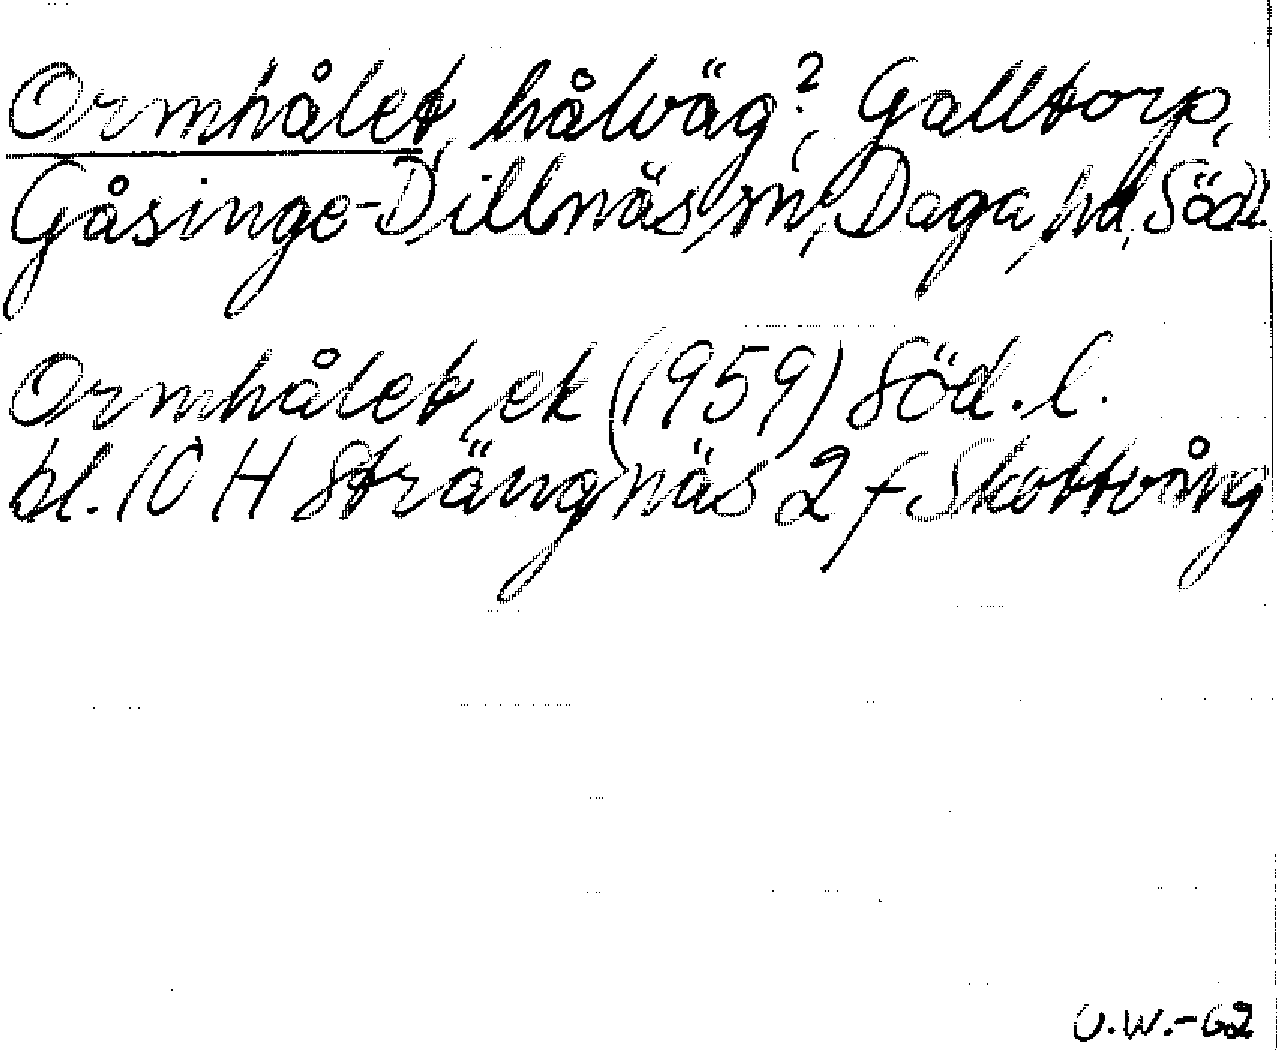 Ormhålet, hålväg?, Galltorp,
Gåsinge-Dillnäs sn, Daga hd, Södl.
Ormhålet ek (1959) Söd. l.
bl. 10 H Strängnäs 2 f Skottvång
U.W.-62